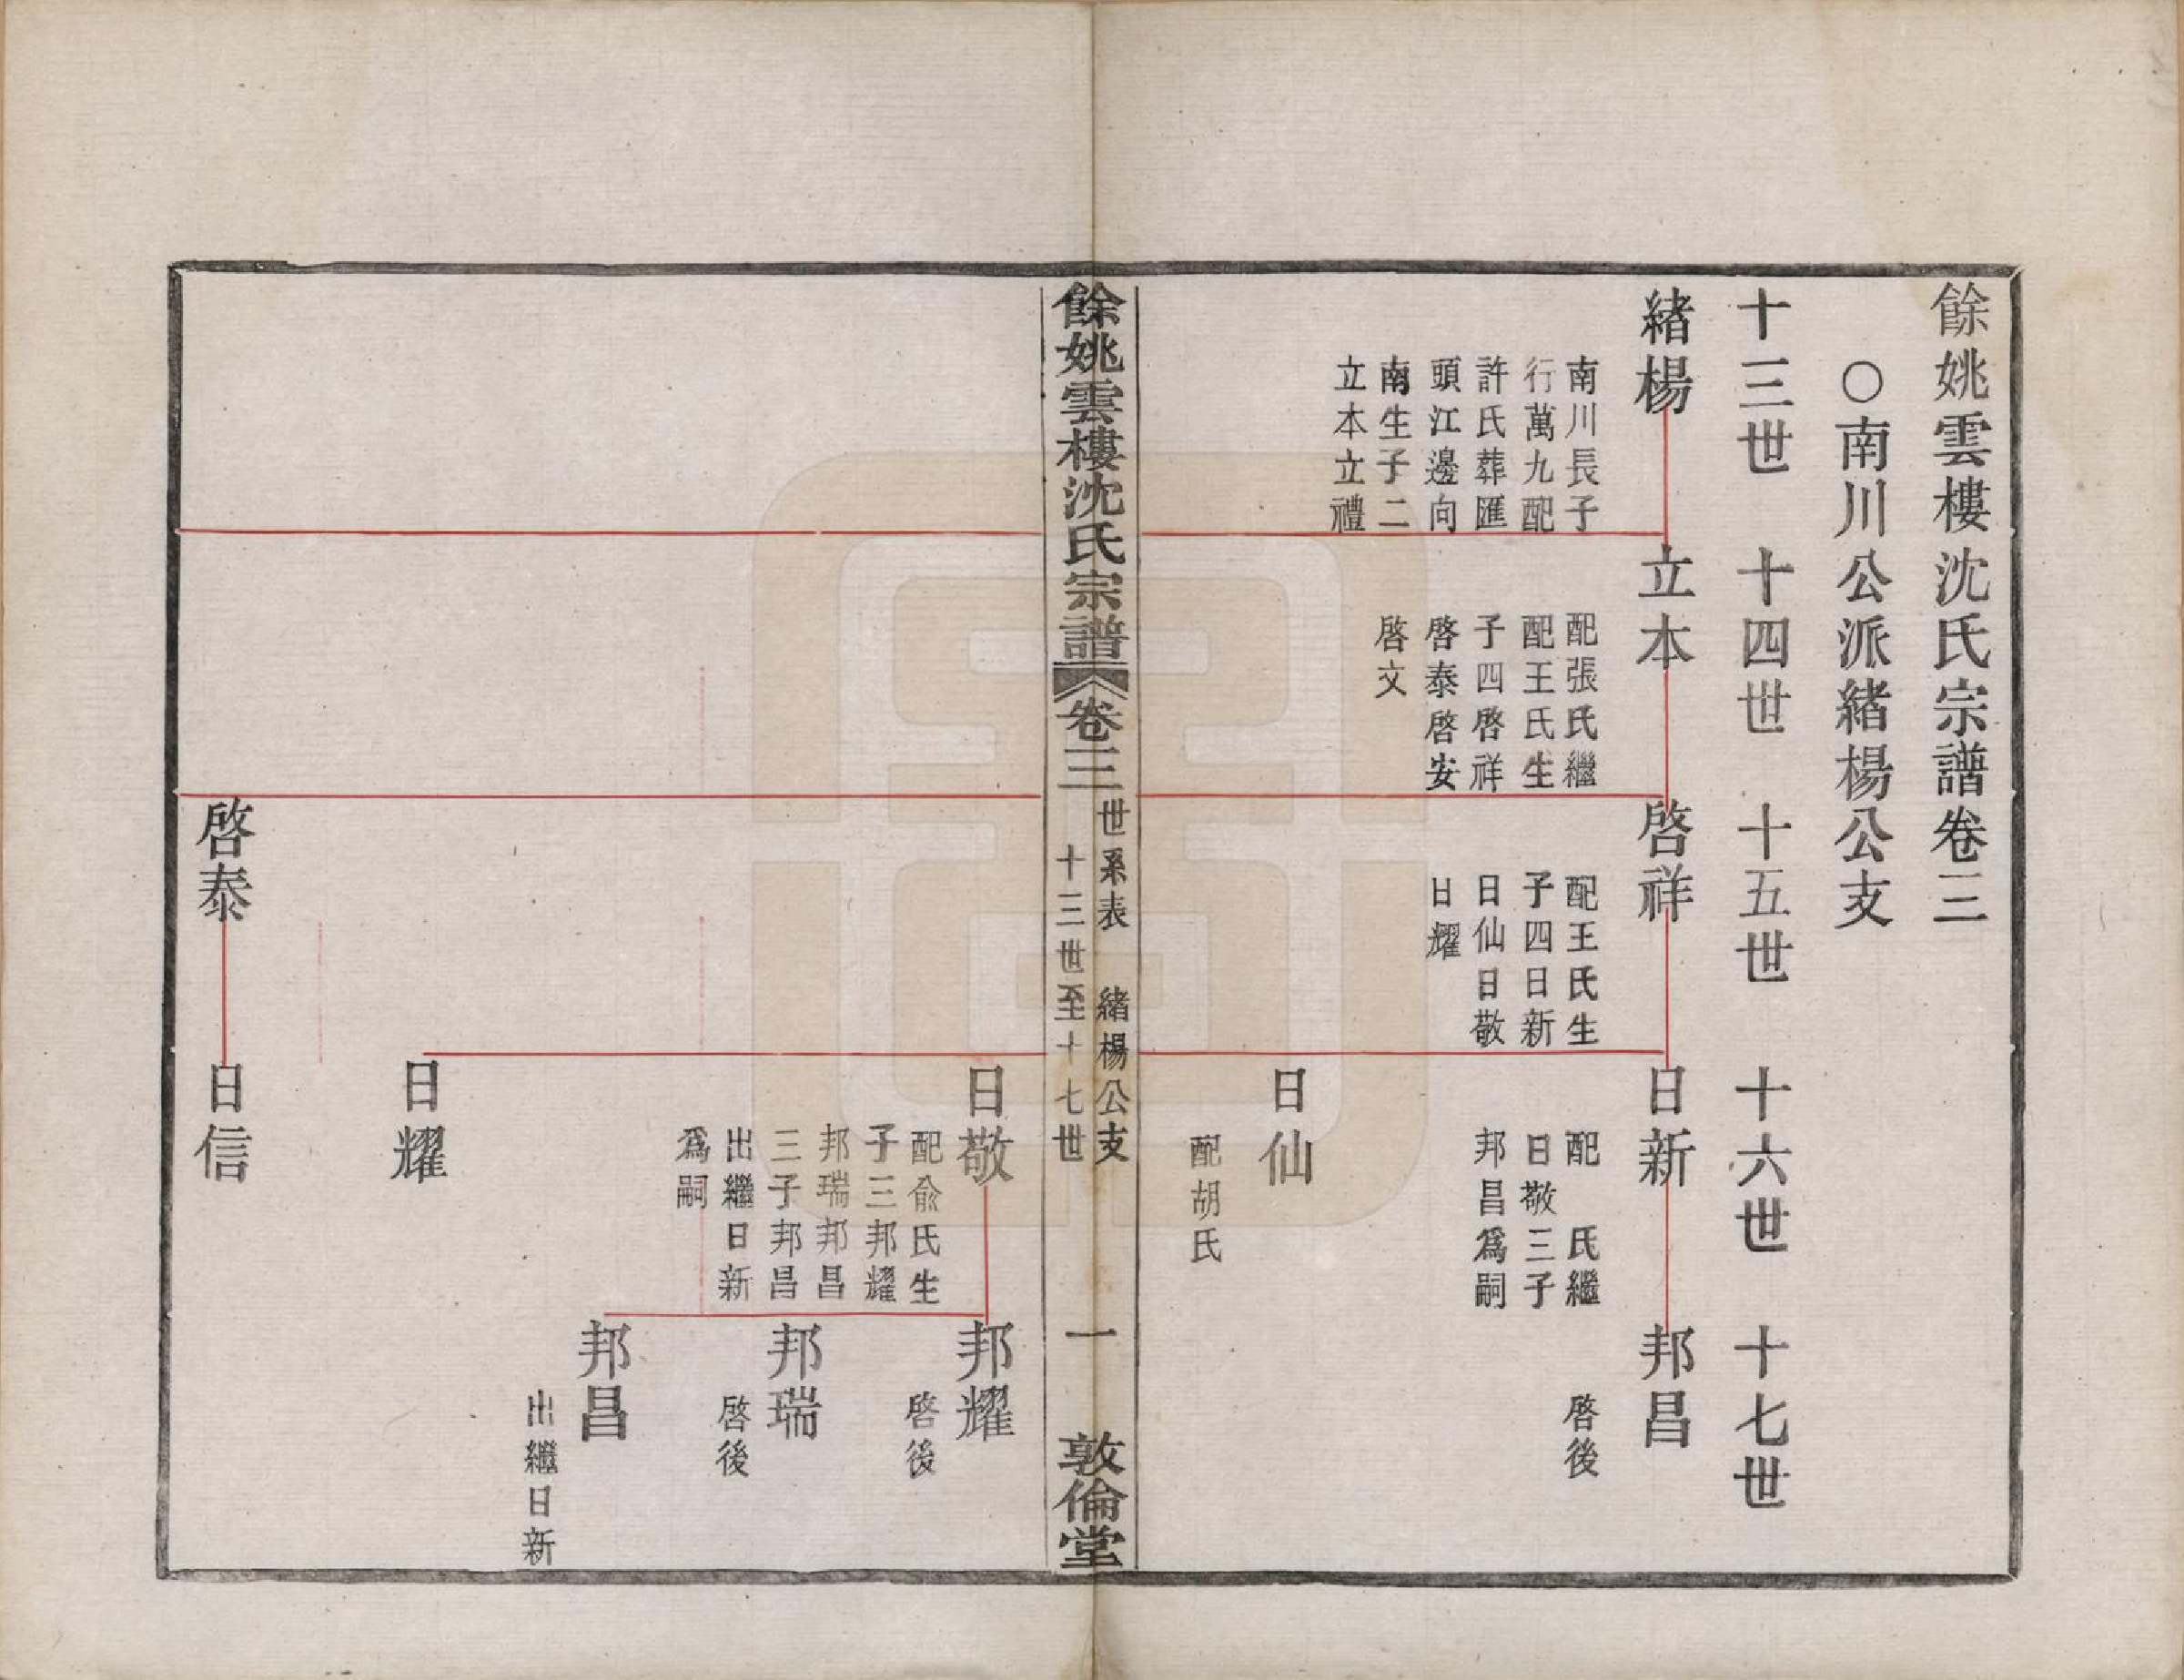 餘姚雲樓沈氏宗譜卷三
○南川公派緒楊公支
十三世　十四世　十五世　十六世　十七世
緒楊
南川長子
行萬九配
許氏葬匯
頭江邊向
南生子二
立本立禮
立本
配張氏繼
配王氏生
子四啓祥
啓泰啓安
啓文
啓祥
配王氏生
子四日新
日仙日敬
日耀
日新
配　氏繼
日敬三子
邦昌爲嗣
邦昌
啓後
日仙
配胡氏
餘姚雲樓沈氏宗譜
卷三
世系表　緒楊公支
十三世至十七世
一
敦倫堂
日敬
配俞氏生
子三邦耀
邦瑞邦昌
三子邦昌
出繼日新
爲嗣
邦耀
啓後
邦瑞
啓後
邦昌
出繼日新
日耀
啓泰
日信